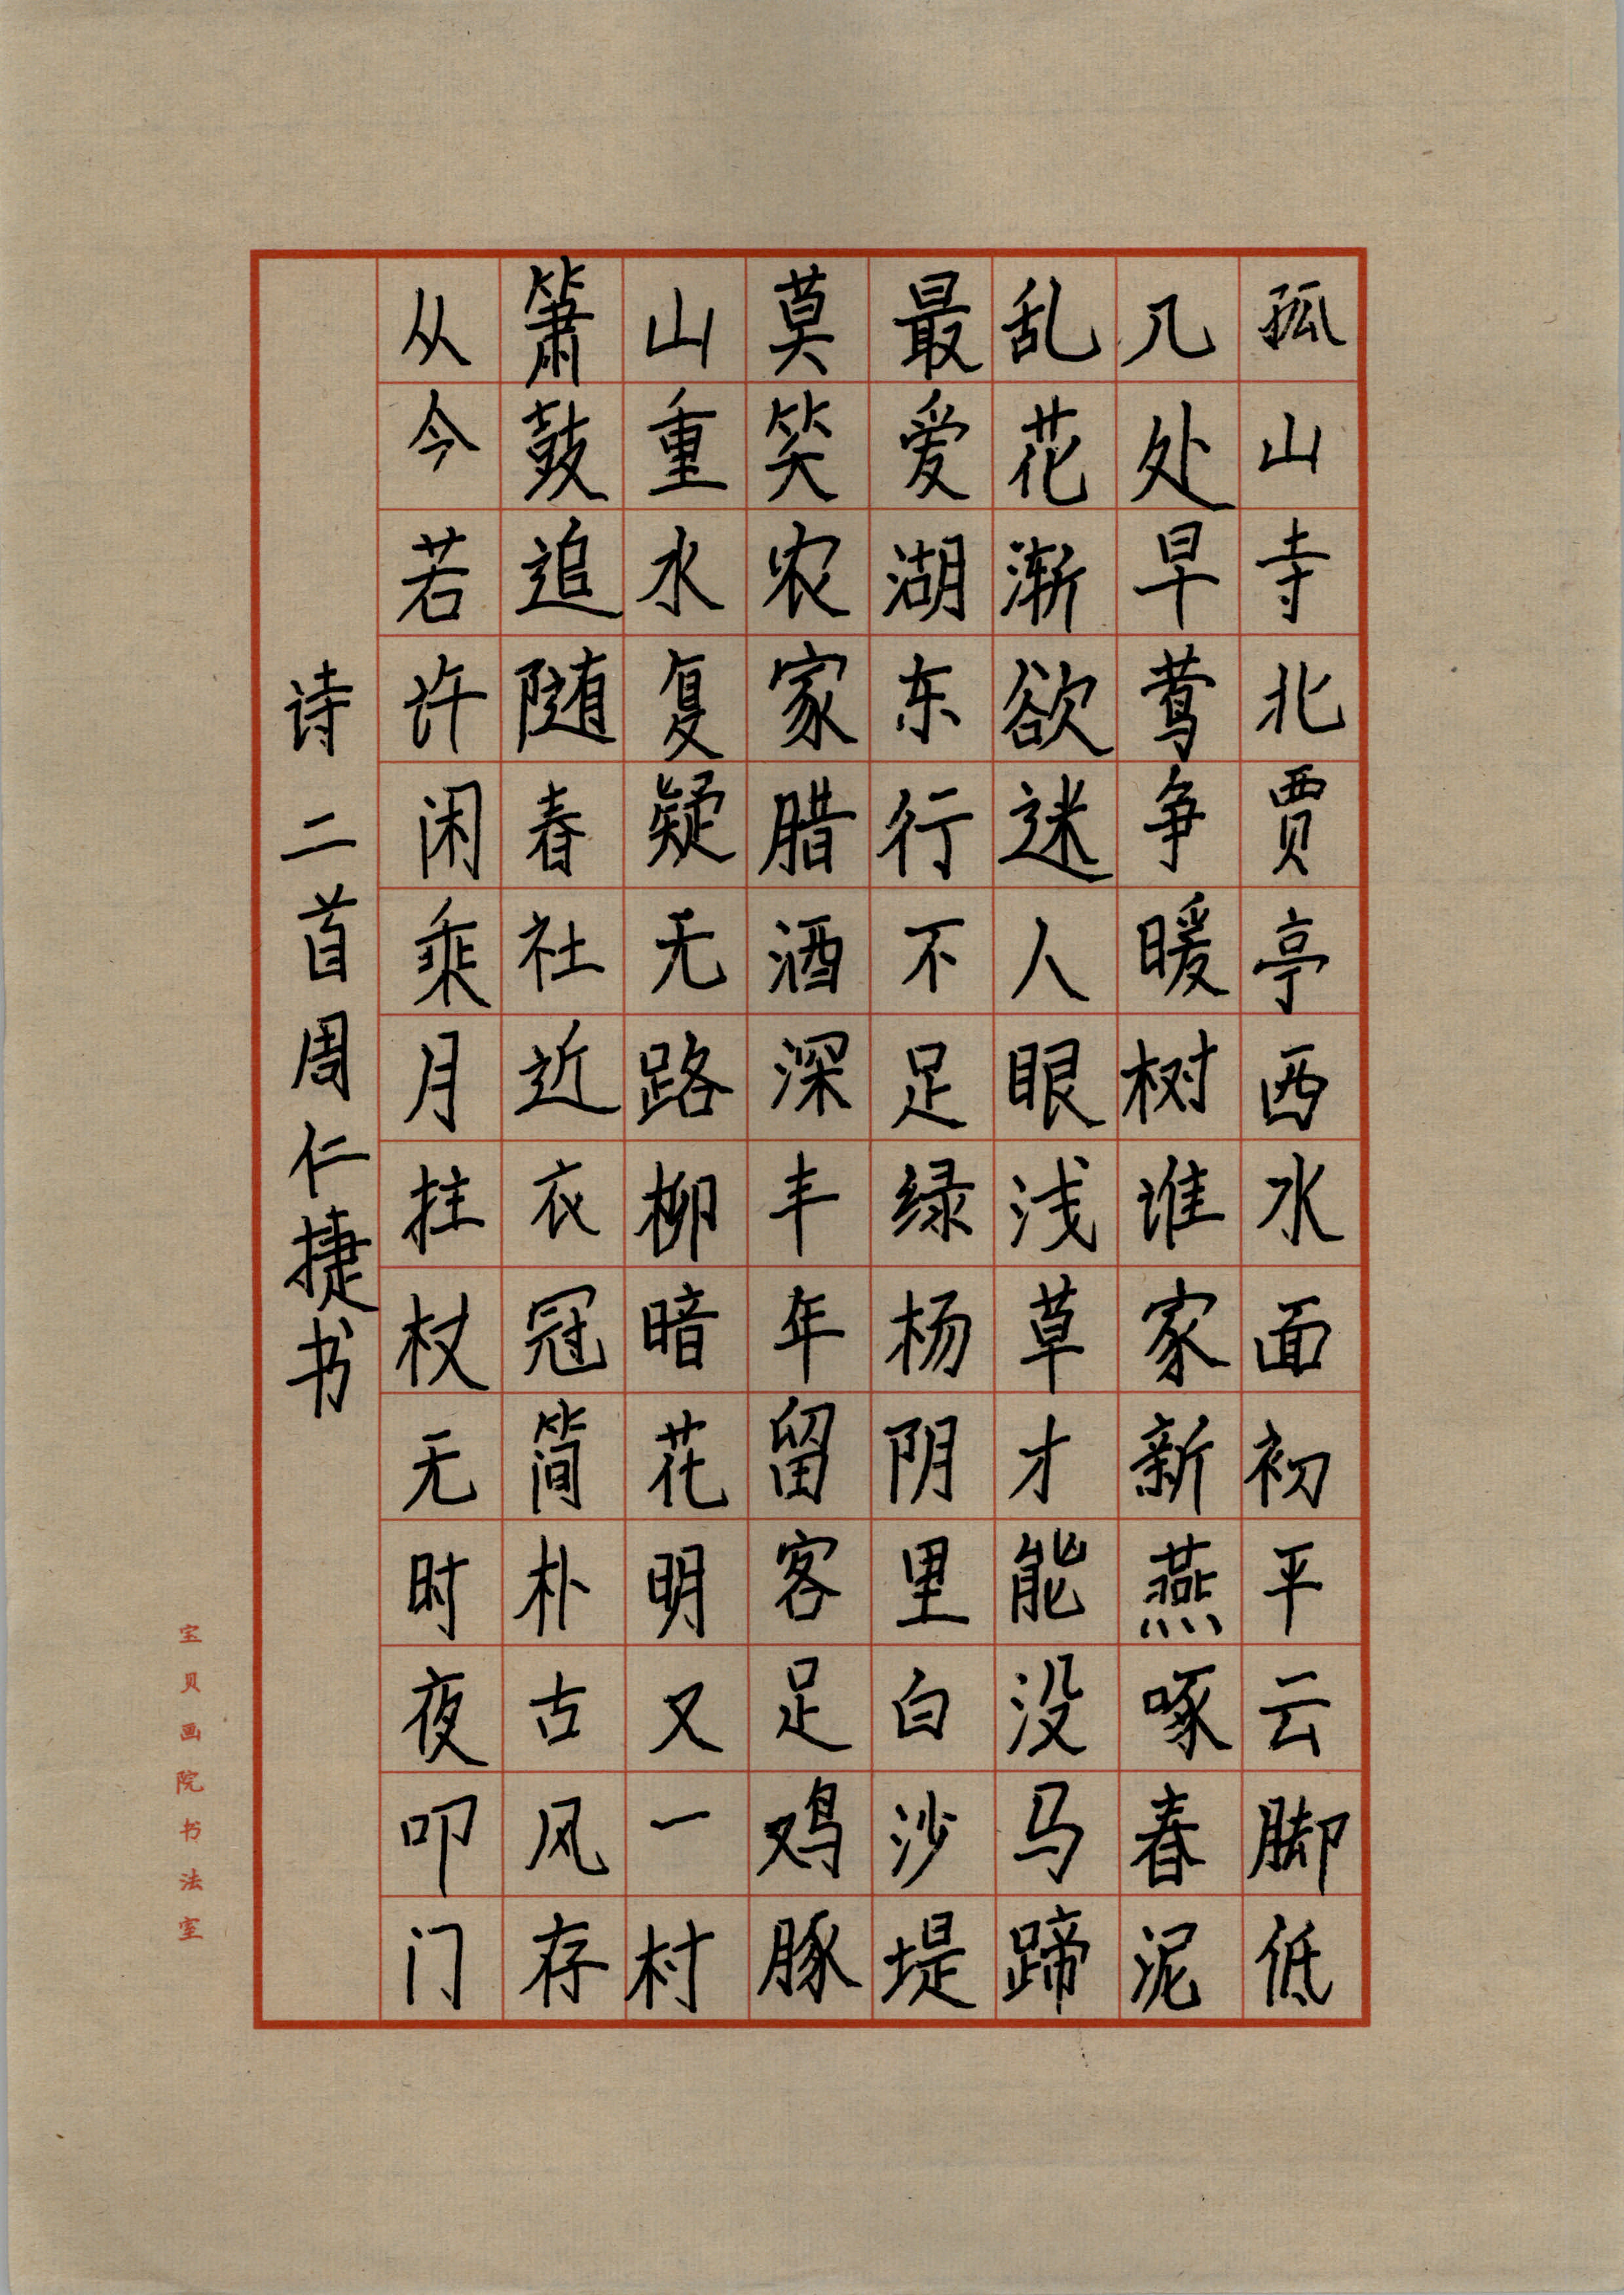 孤山寺北贾亭西水面初平云脚低
几处早莺争暖树谁家新燕啄春泥
乱花渐欲迷人眼浅草才能没马蹄
最爱湖东行不足绿杨阴里白沙堤
莫笑农家腊酒深丰年留客足鸡豚
山重水复疑无路柳暗花明又一村
箫鼓追随春社近衣冠简朴古风存
从今若许闲乘月拄杖无时夜叩门
诗二首周仁捷书
宝贝画院书法室